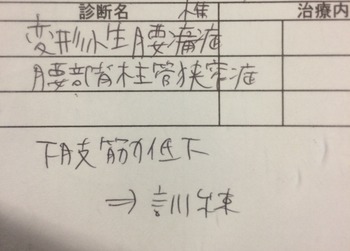 診断名 治療内
変形性腰痛症
腰部脊柱管狭窄症
下肢筋力低下
⇒ 訓練